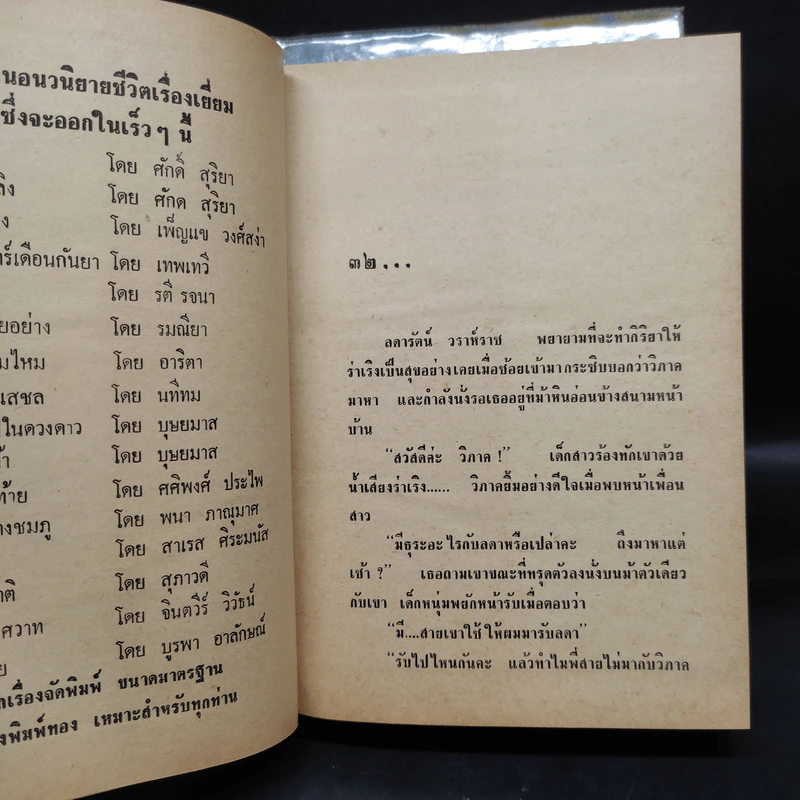 นอนวนิยายชีวิตเรื่องเยี่ยม
ซึ่งจะออกในเร็วๆ นี้
โดย ศักดิ์ สุริยา
ลิง โดย ศักด สุริยา
ง โดย เพ็ญแข วงศ์สง่า
ร์เดือนกันยา โดย เทพเทวี
โดย รตี รจนา
ยอย่าง โดย รมณียา
มไหม โดย อาริตา
เสชล โดย นทีทม
ในดวงดาว โดย บุษยมาส
ก้า โดย บุษยมาส
ท้าย โดย ศศิพงศ์ ประไพ
างชมภู โดย พนา ภาณุมาศ
โดย สาเรส ศิระมนัส
ติ โดย สุภาวดี
ศวาท โดย จินตวีร์ วิวัธน์
ย โดย บูรพา อาลักษณ์
กเรื่องจัดพิมพ์ ขนาดมาตรฐาน
งพิมพ์ทอง เหมาะสำหรับทุกท่าน
๓๒...
ลดารัตน์ วราห์ราช พยายามที่จะทำกิริยาให้
ร่าเริงเป็นสุขอย่างเคยเมื่อช้อยเข้ามากระซิบบอกว่าวิภาค
มาหา และกำลังนั่งรอเธออยู่ที่ม้าหินอ่อนข้างสนามหน้า
บ้าน
“สวัสดีค่ะ วิภาค !” เด็กสาวร้องทักเขาด้วย
น้ำเสียงร่าเริง...... วิภาคยิ้มอย่างดีใจเมื่อพบหน้าเพื่อน
สาว
“มีธุระอะไรกับลดาหรือเปล่าคะ ถึงมาหาแต่
เช้า ?” เธอถามเขาขณะที่ทรุดตัวลงนั่งบนม้าตัวเดียว
กับเขา เด็กหนุ่มพยักหน้ารับเมื่อตอบว่า
“มี....สายเขาใช้ให้ผมมารับลดา”
“รับไปไหนกันคะ แล้วทำไมพี่สายไม่มากับวิภาค